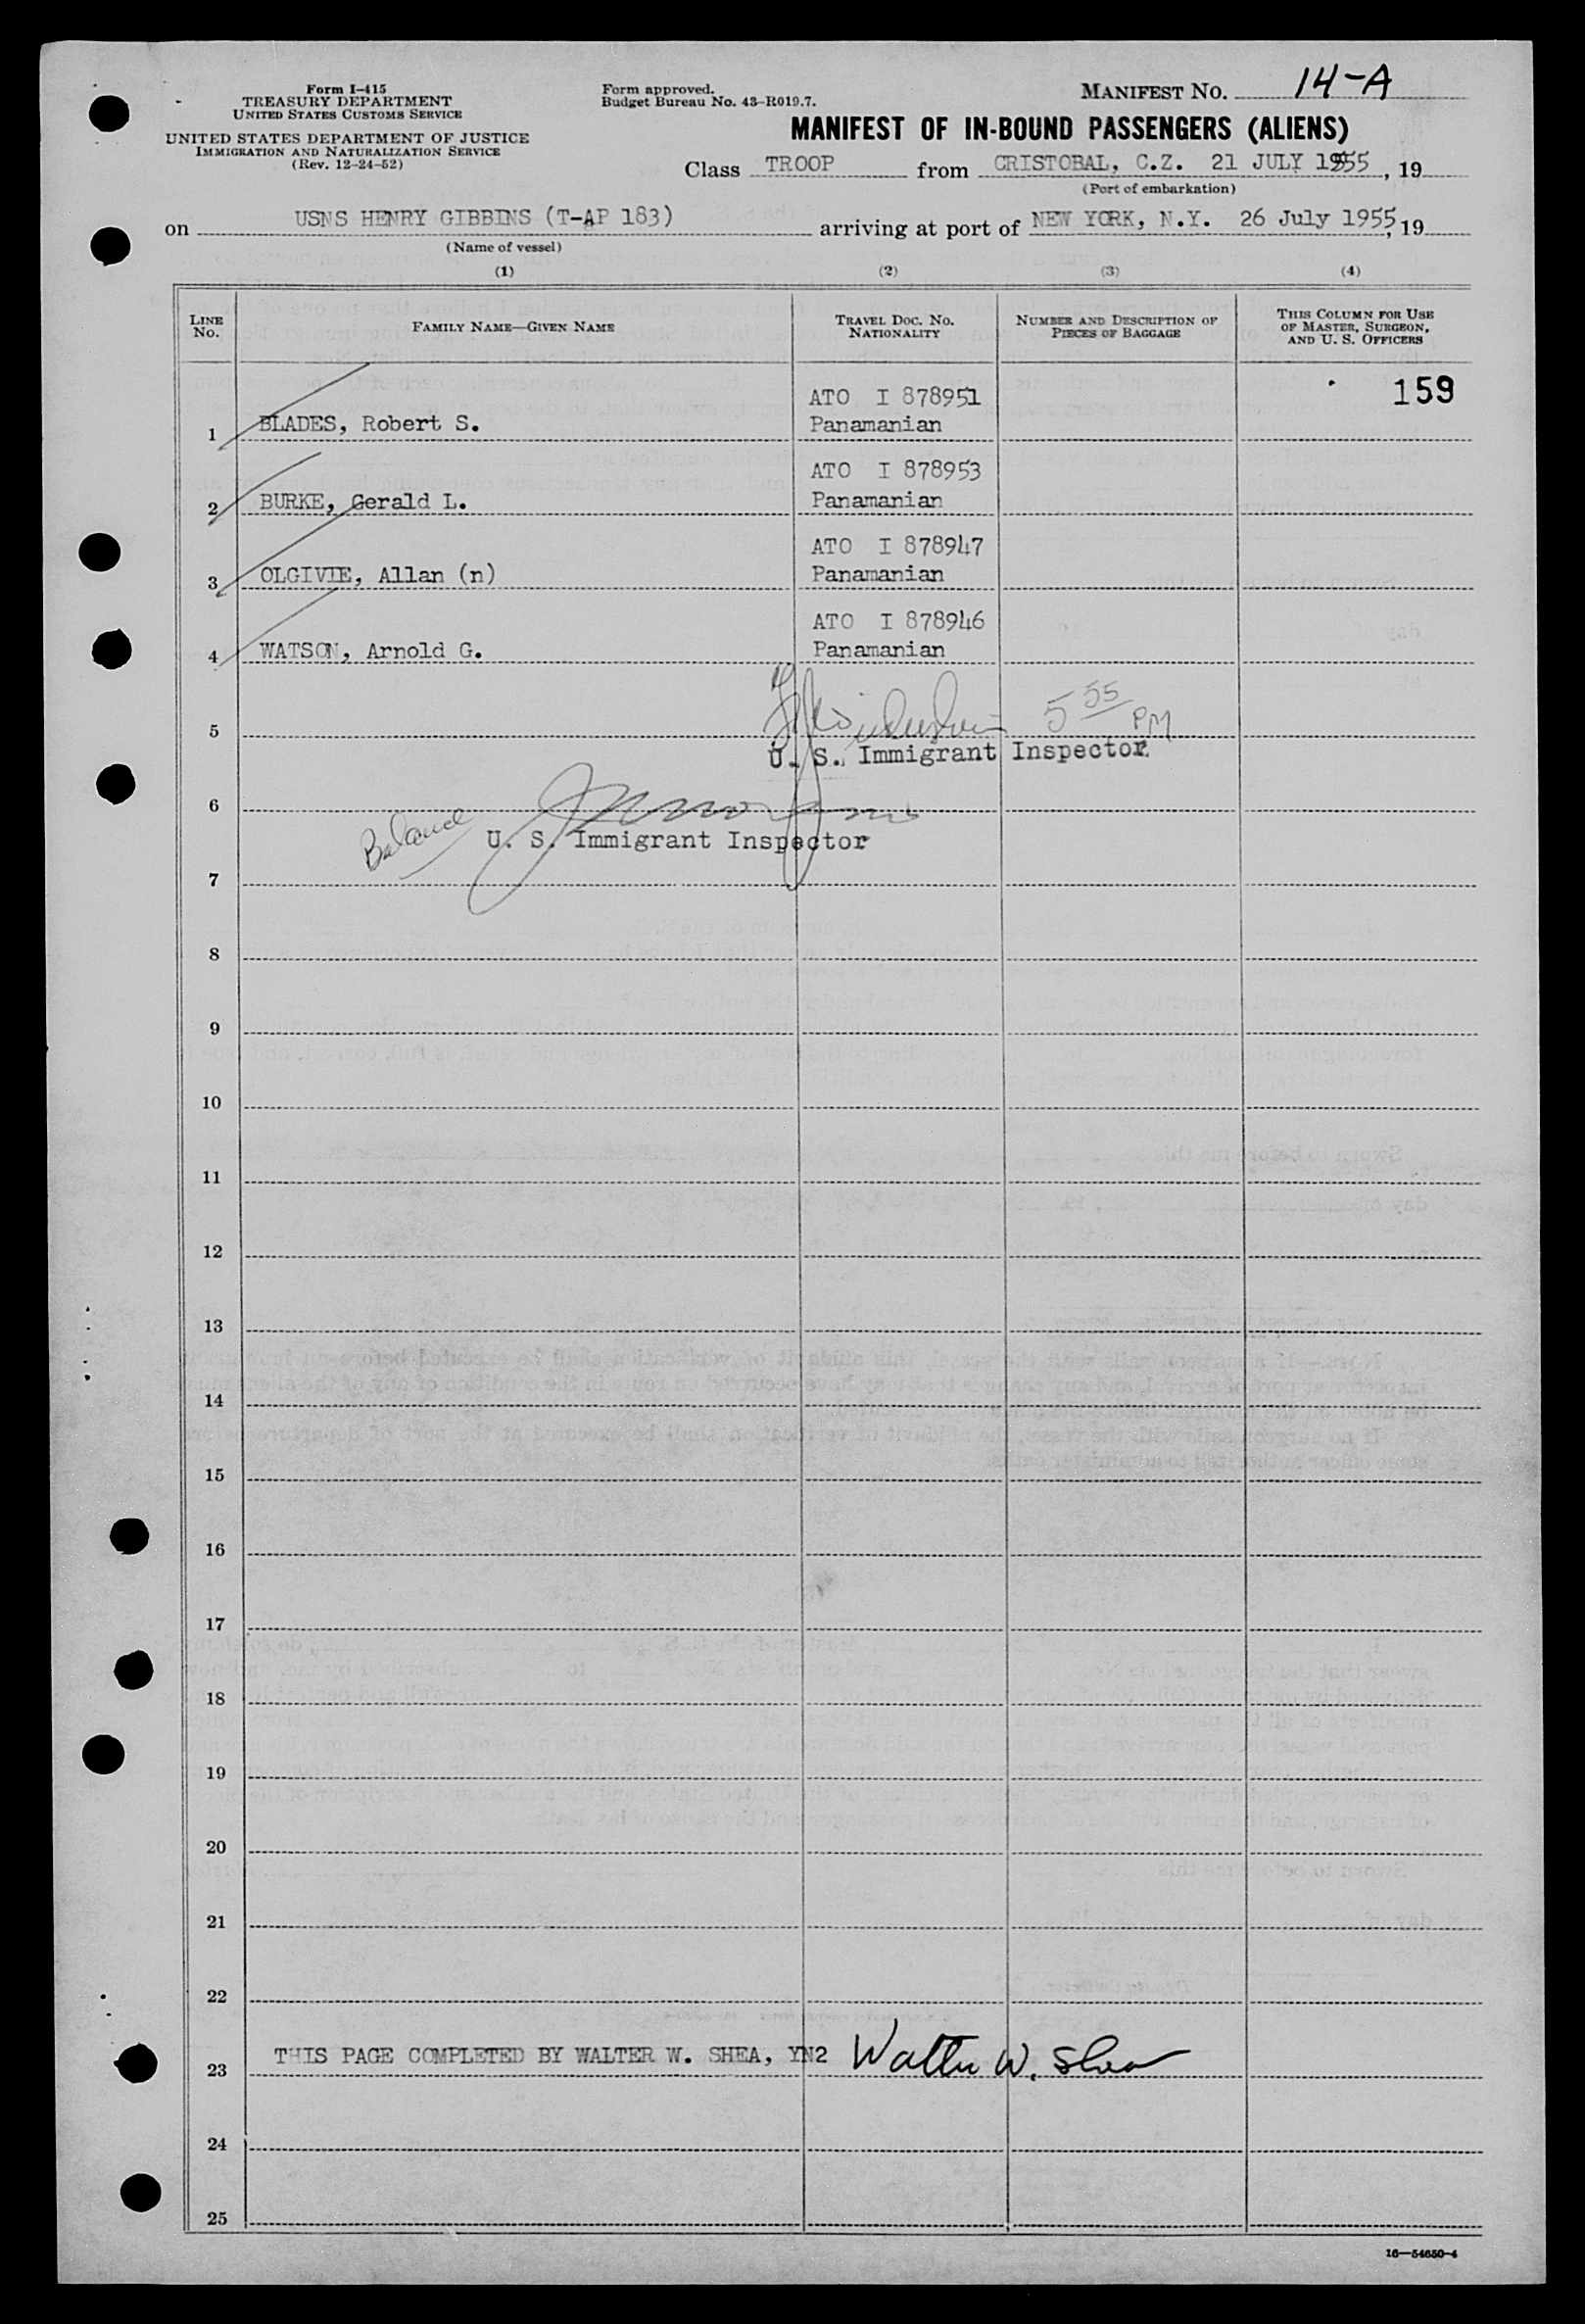 Form I-415
TREASURY DEPARTMENT
UNITED STATES CUSTOMS SERVICE
UNITED STATES DEPARTMENT OF JUSTICE
IMMIGRATION AND NATURALIZATION SERVICE
(Rev. 12-24-52)
Form approved.
Budget Bureau No. 43-R019.7.
MANIFEST NO. 14-A
MANIFEST OF IN-BOUND PASSENGERS (ALIENS)
Class TROOP from CRISTOBAL, C.Z. 21 JULY 1955, 19
(Port of embarkation)
on USNS HENRY GIBBINS (T-AP 183) arriving at port of NEW YORK, N.Y. 26 July 1955, 19
(Name of vessel)
(1) (2) (3) (4)
LINE NO. FAMILY NAME—GIVEN NAME TRAVEL DOC. NO. NATIONALITY NUMBER AND DESCRIPTION OF PIECES OF BAGGAGE THIS COLUMN FOR USE OF MASTER, SURGEON, AND U. S. OFFICERS
159
ATO I 878951
1 BLADES, Robert S. Panamanian
ATO I 878953
2 BURKE, Gerald L. Panamanian
ATO I 878947
3 OLGIVIE, Allan (n) Panamanian
ATO I 878946
4 WATSON, Arnold G. Panamanian
5 55 PM
5
U. S. Immigrant Inspector
6
Balance U. S. Immigrant Inspector
7
8
9
10
11
12
13
14
15
16
17
18
19
20
21
22
23 THIS PAGE COMPLETED BY WALTER W. SHEA, YN2 Walter W. Shea
24
25
16—54650-4